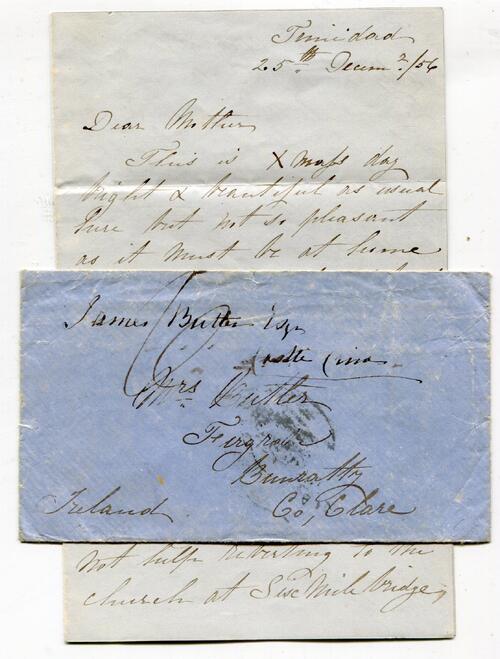 Trinidad
25th Decemr /56
Dear Mother
This is Xmass day
bright & beautiful as usual
here but not so pleasant
as it must be at home
James Butler Esqr
Castle
Mrs Butler
Firgrove
Bunratty
Ireland Co, Clare
not help reverting to the
church at Six Mile bridge,